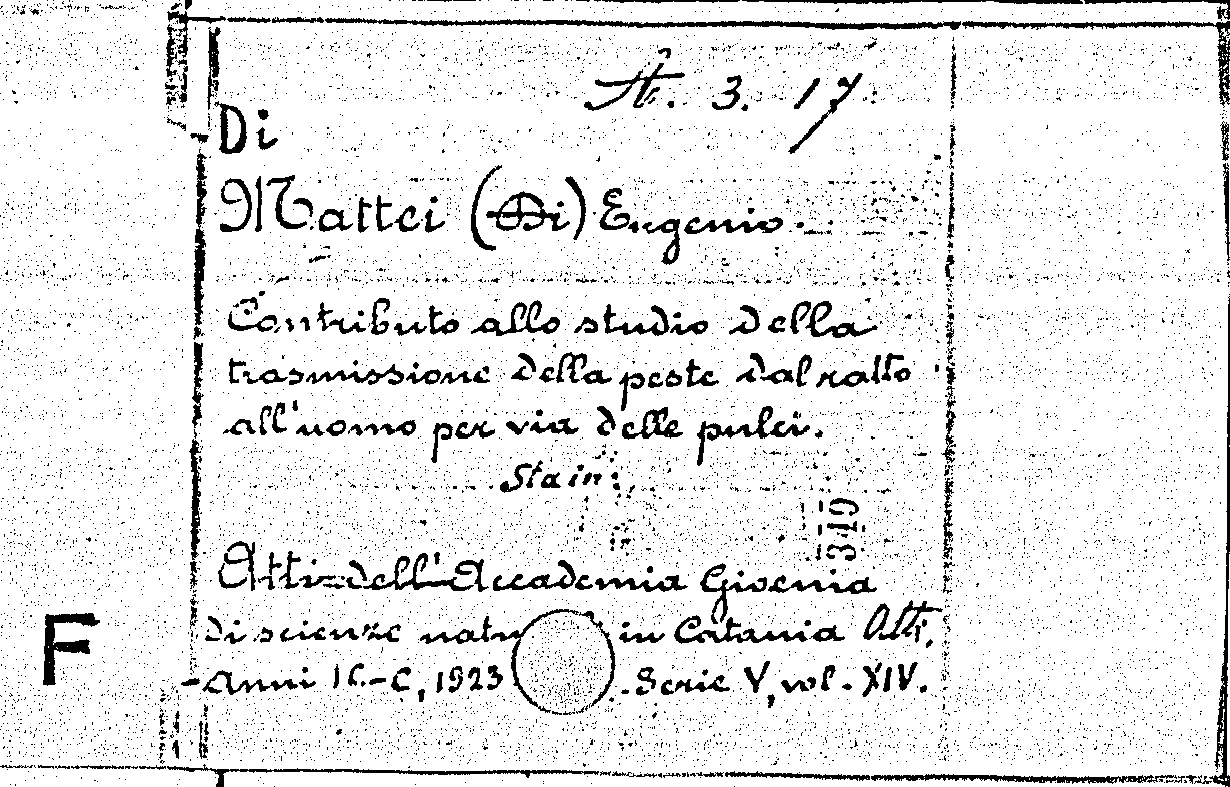 At. 3. 17
Di
Mattei (Di) Eugenio.
Contributo allo studio della
trasmissione della peste dal ratto
all'uomo per via delle pulci.
Stain:
349
Atti dell'Accademia Gioenia
di scienze natu in Catania Atti.
F
Anni IC-C, 1923 . Serie V, vol. XIV.